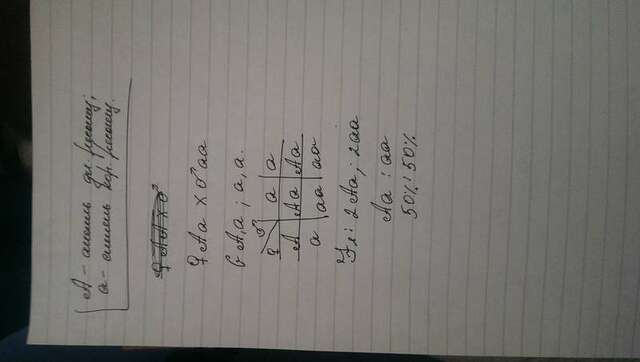 A - аллель дл. ресниц;
a - аллель кор. ресниц.
♀ AA x ♂
♀ Aa x ♂ aa
G A, a ; a, a.
♀ ♂ a a
A Aa Aa
a aa aa
F₁: 2Aa; 2aa
Aa : aa
50% : 50%